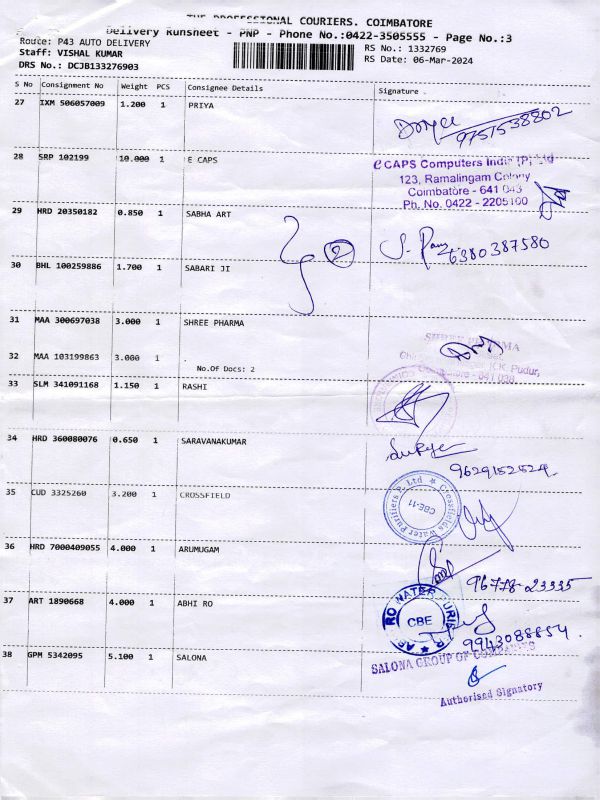 THE PROFESSIONAL COURIERS. COIMBATORE
Delivery Runsheet - PNP - Phone No.:0422-3505555 - Page No.:3
Route: P43 AUTO DELIVERY
RS No.: 1332769
Staff: VISHAL KUMAR
RS Date: 06-Mar-2024
DRS No.: DCJB133276903
S No Consignment No Weight PCS Consignee Details Signature
27 IXM 506057009 1.200 1 PRIYA
9751538802
28 SRP 102199 10.000 1 E CAPS
eCAPS Computers India (P) Ltd
123, Ramalingam Colony
Coimbatore - 641 043
Ph. No. 0422 - 2205100
29 HRD 20350182 0.850 1 SABHA ART
6380387580
2
30 BHL 100259886 1.700 1 SABARI JI
31 MAA 300697038 3.000 1 SHREE PHARMA
SHREE PHARMA
K.K. Pudur,
Coimbatore - 641 038
32 MAA 103199863 3.000 1 .
No.Of Docs: 2
33 SLM 341091168 1.150 1 RASHI
34 HRD 360080076 0.650 1 SARAVANAKUMAR
Surya
9629152524
35 CUD 3325260 3.200 1 CROSSFIELD
Crossfields Water Purifiers P. Ltd
CBE-11
36 HRD 7000409055 4.000 1 ARUMUGAM
96778-23335
37 ART 1890668 4.000 1 ABHI RO
RO WATER
CBE
9943088854
38 GPM 5342095 5.100 1 SALONA
SALONA GROUP OF COMPANIES
Authorised Signatory